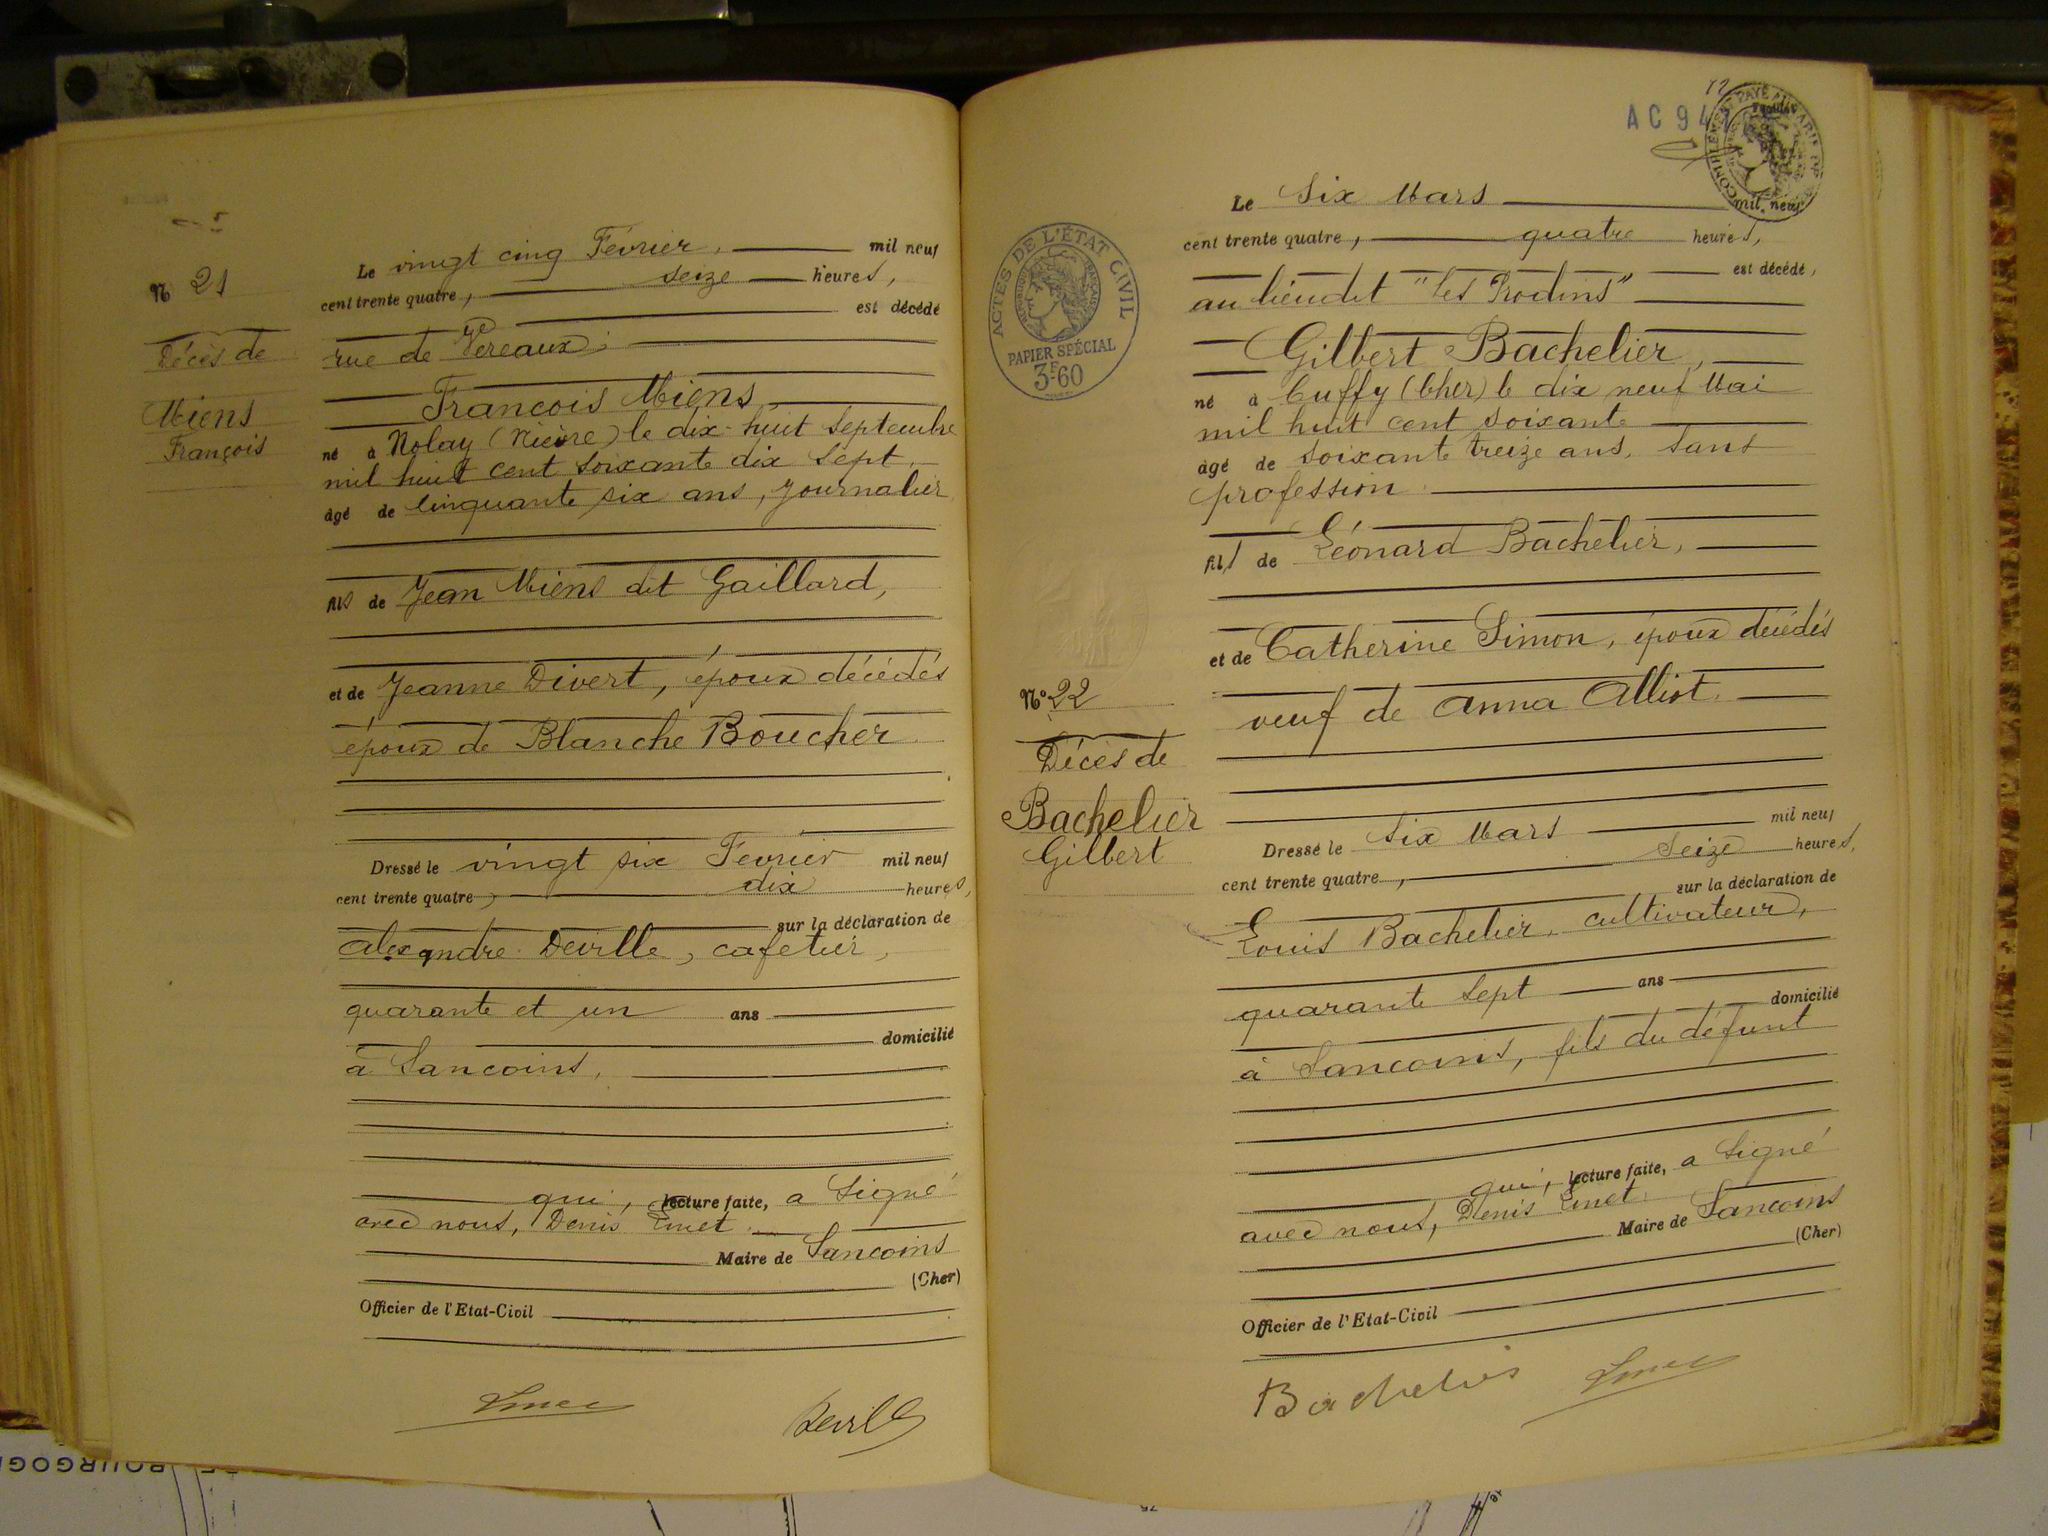 Nº 21
Décès de
Miens
François
Le vingt cinq Février, mil neuf
cent trente quatre, seize heures,
est décédé
rue de Vereaux,
François Miens
né à Nolay (Nièvre) le dix-huit Septembre
mil huit cent soixante dix sept,
âgé de cinquante six ans, journalier
fils de Jean Miens dit Gaillard,
et de Jeanne Divert, époux décédés
époux de Blanche Boucher
Dressé le vingt six Fevrier mil neuf
cent trente quatre, dix heures,
sur la déclaration de
Alexandre Deville, cafetier,
quarante et un ans
domicilié
à Sancoins,
qui, lecture faite, a signé
avec nous, Denis
Maire de Sancoins
(Cher)
Officier de l'Etat-Civil
Deville
AC 94
COMPLÉMENT PAYÉ
ACTES DE L'ÉTAT CIVIL
RÉPUBLIQUE FRANÇAISE
PAPIER SPÉCIAL
3F60
Nº 22
Décès de
Bachelier
Gilbert
Le Six Mars mil neuf
cent trente quatre, quatre heures,
est décédé,
au lieudit "les Prodins"
Gilbert Bachelier,
né à Cuffy (Cher) le dix neuf Mai
mil huit cent soixante
âgé de soixante treize ans, sans
profession
fils de Léonard Bachelier,
et de Catherine Simon, époux décédés
veuf de Anna Alliot.
Dressé le Six Mars mil neuf
cent trente quatre, seize heures,
sur la déclaration de
Louis Bachelier, cultivateur,
quarante sept ans
domicilié
à Sancoins, fils du défunt
qui, lecture faite, a signé
avec nous, Denis
Maire de Sancoins
(Cher)
Officier de l'Etat-Civil
Bachelier
BOURGOG
75